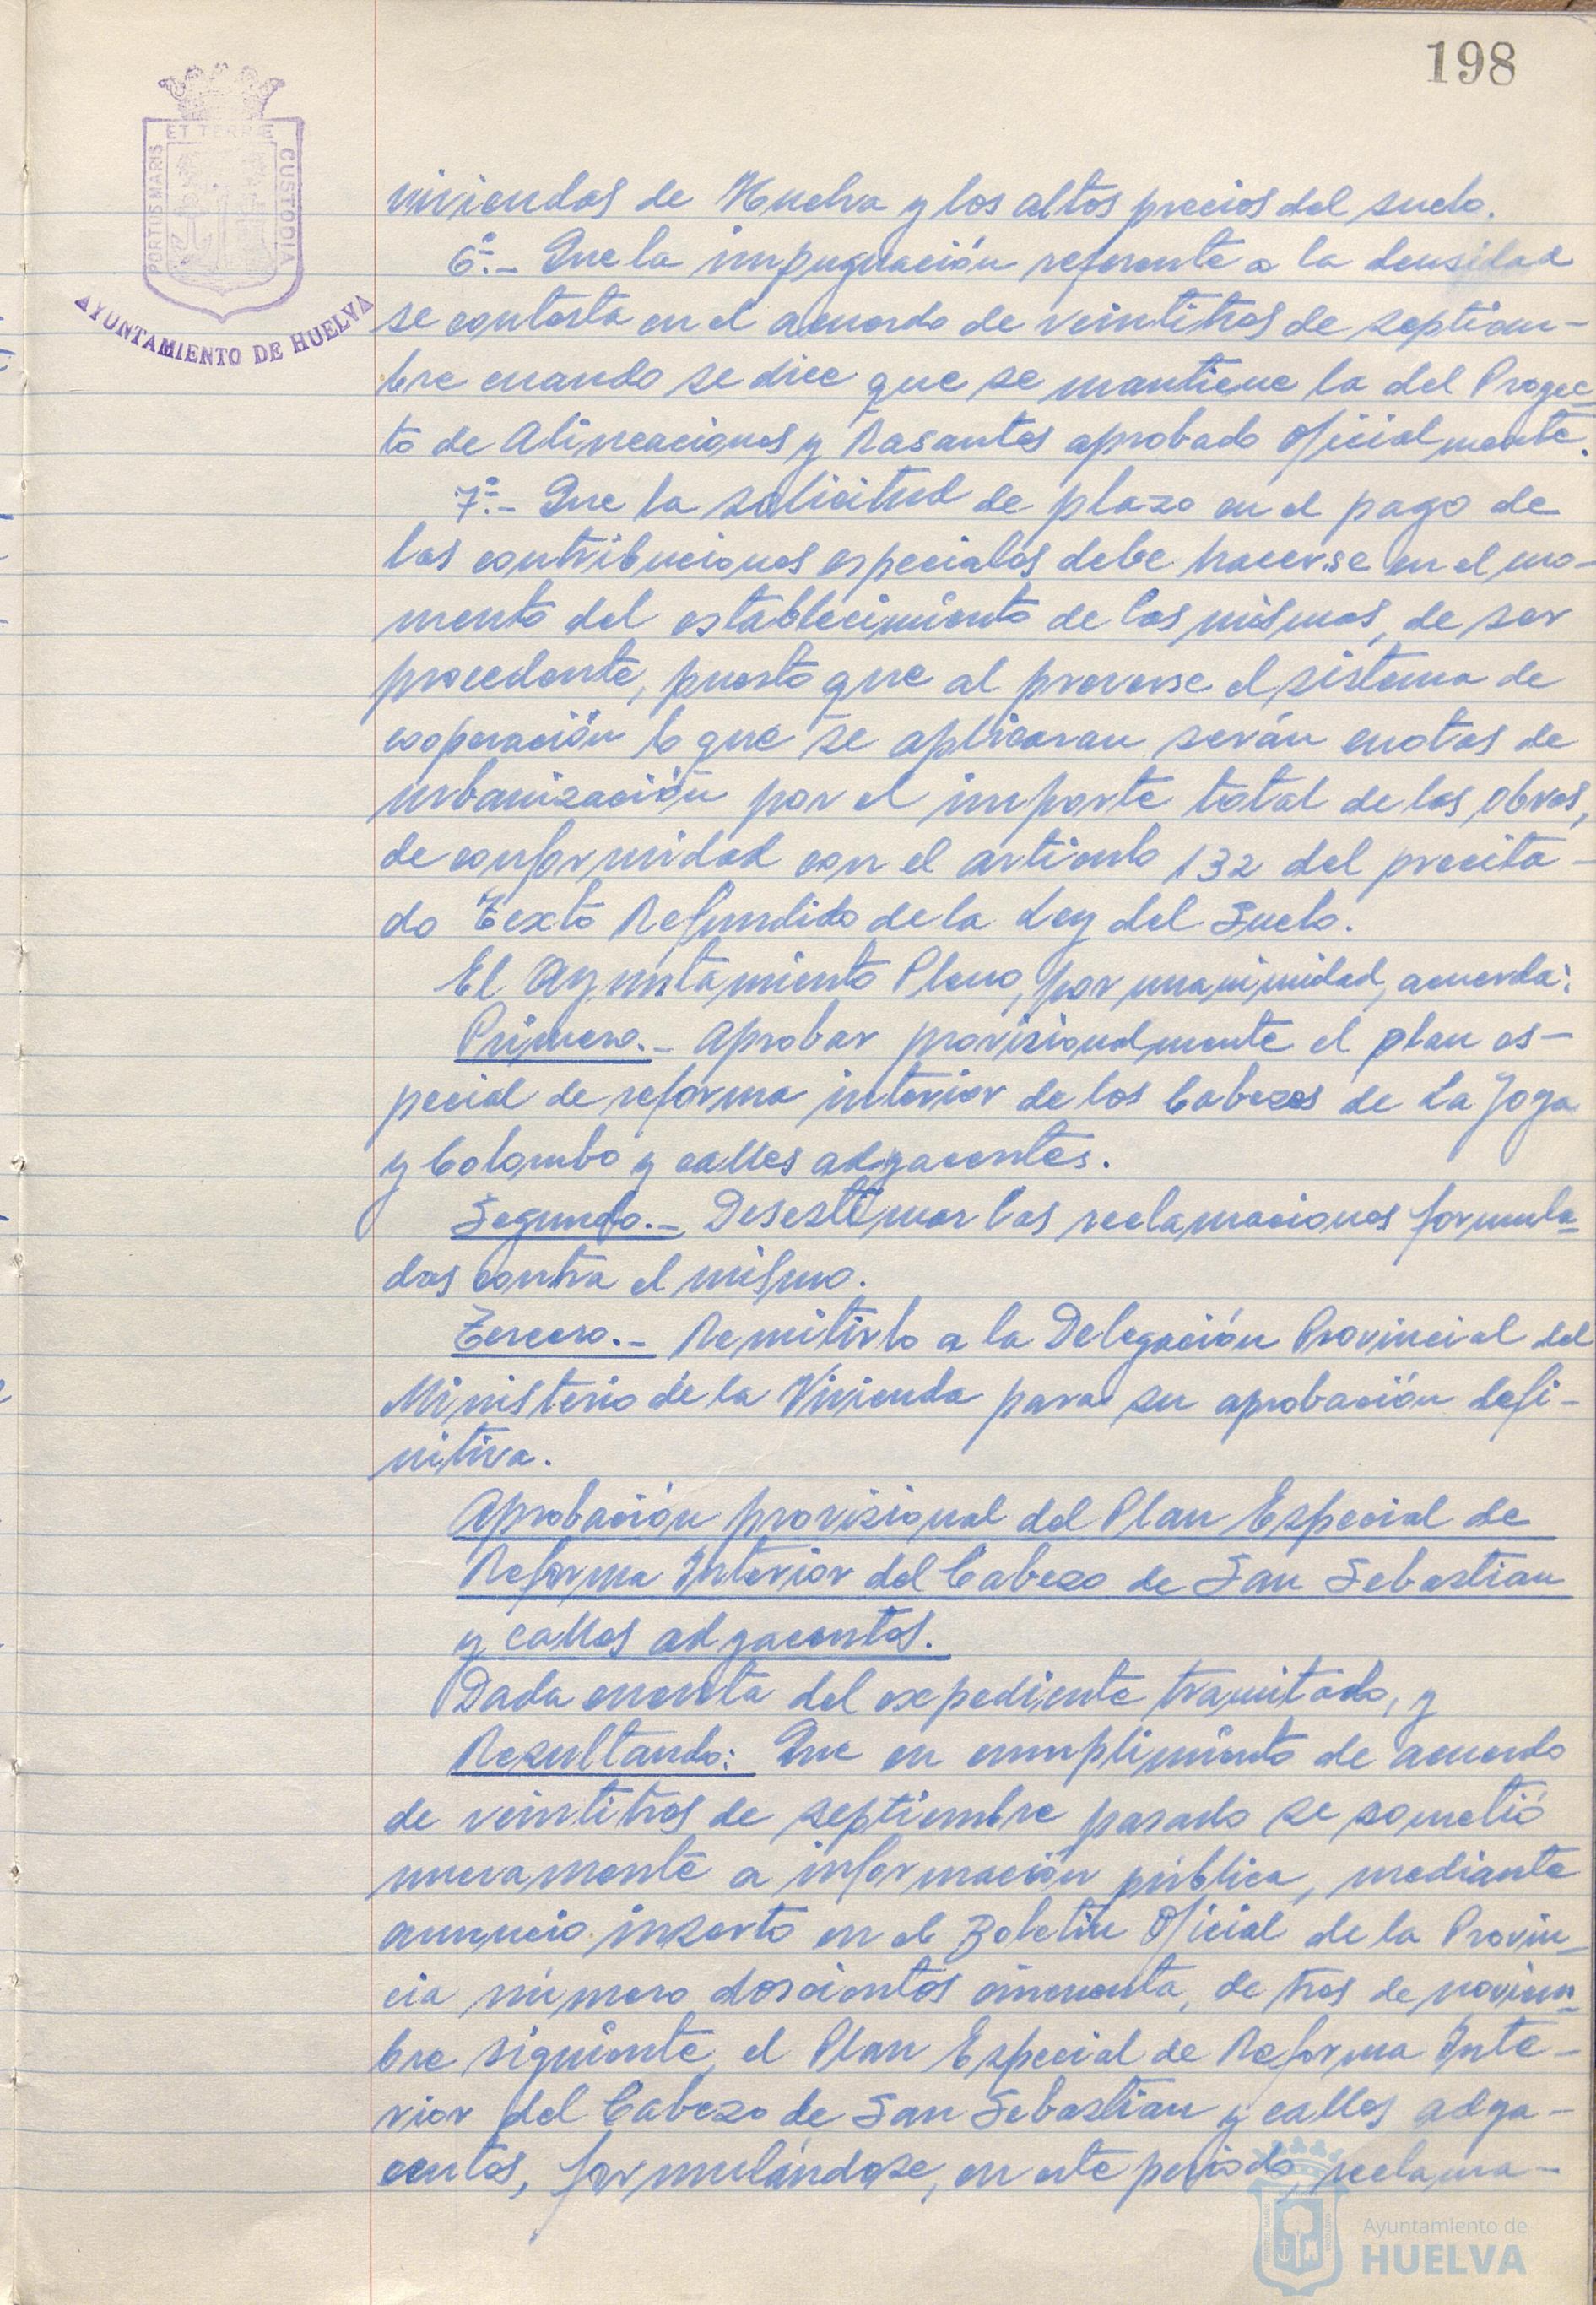 198
PORTUS MARIS
ET TERRÆ
CUSTODIA
AYUNTAMIENTO DE HUELVA
viviendas de Huelva y los altos precios del suelo.
6º.- Que la impugnación referente a la densidad
se contesta en el acuerdo de veintitres de septiem-
bre cuando se dice que se mantiene la del Proyec-
to de Alineaciones y Rasantes aprobado oficialmente.
7º.- Que la solicitud de plazo en el pago de
las contribuciones especiales debe hacerse en el mo-
mento del establecimiento de las mismas, de ser
procedente, puesto que al preverse el sistema de
cooperación lo que se aplicaran serán cuotas de
urbanización por el importe total de las obras,
de conformidad con el articulo 132 del precita-
do Texto Refundido de la Ley del Suelo.
El Ayuntamiento Pleno, por unanimidad, acuerda:
Primero.- Aprobar provisionalmente el plan es-
pecial de reforma interior de los Cabezos de La Joya
y Colombo y calles adyacentes.
Segundo.- Desestimar las reclamaciones formula-
das contra el mismo.
Tercero.- Remitirlo a la Delegación Provincial del
Ministerio de la Vivienda para su aprobación defi-
nitiva.
Aprobación provisional del Plan Especial de
Reforma Interior del Cabezo de San Sebastian
y calles adyacentes.
Dada cuenta del expediente tramitado, y
Resultando: Que en cumplimiento de acuerdo
de veintitres de septiembre pasado se sometió
nuevamente a información pública, mediante
anuncio inserto en el Boletin Oficial de la Provin-
cia número doscientos cincuenta, de tres de noviem-
bre siguiente, el Plan Especial de Reforma Inte-
rior del Cabezo de San Sebastian y calles adya-
centes, formulándose, en este periodo, reclama-
Ayuntamiento de
HUELVA